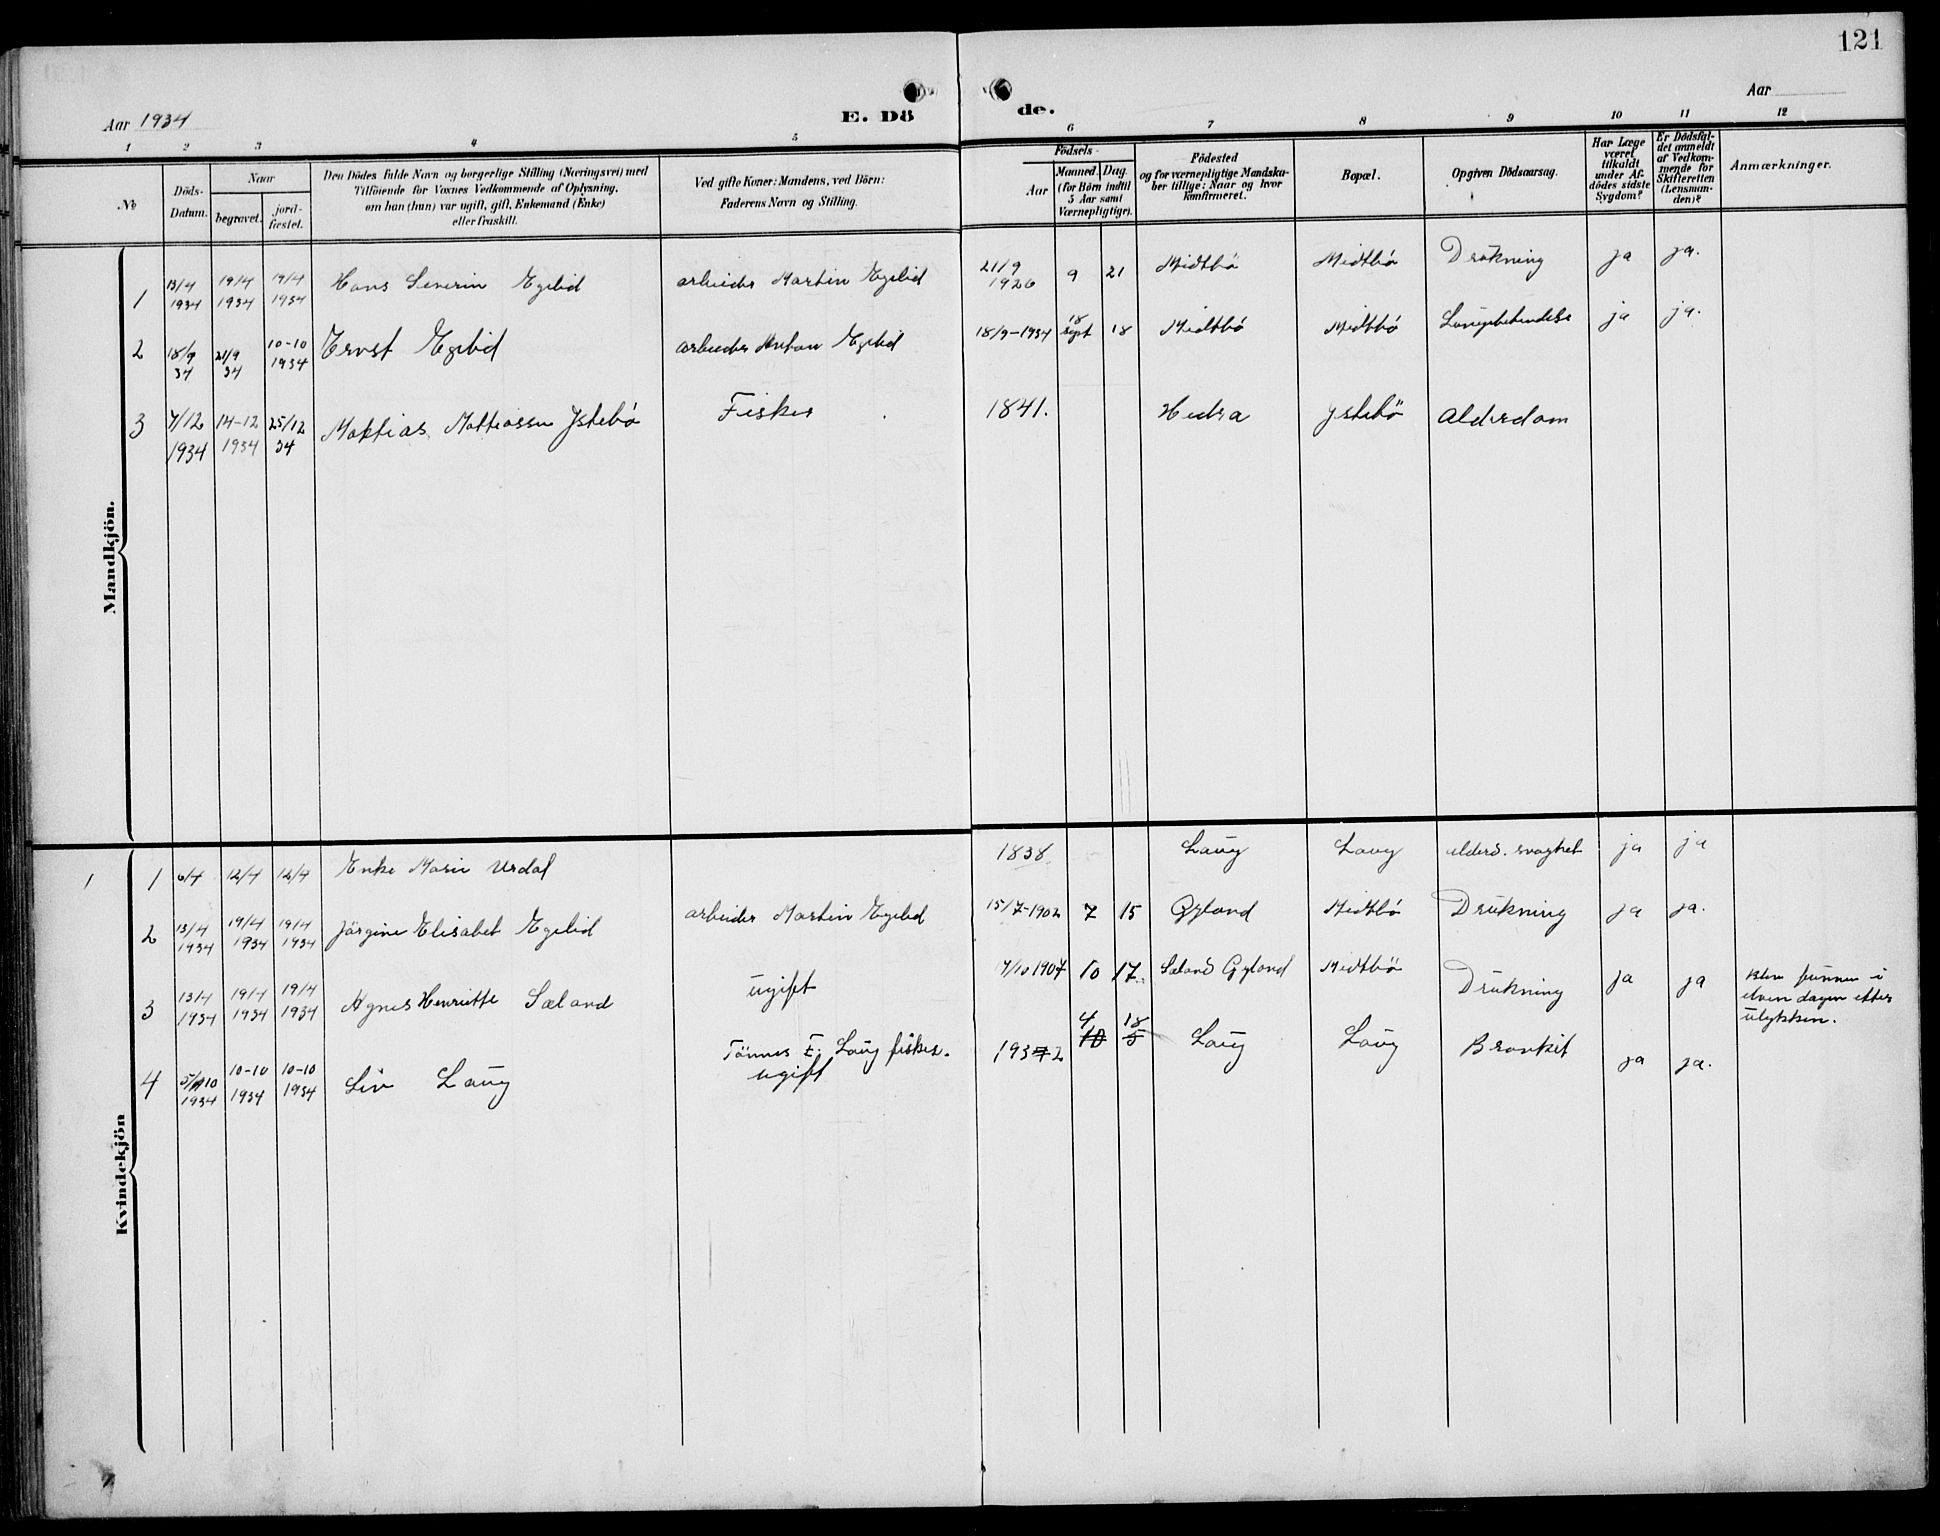 121
Aar 1934
E. Dö
de.
Aar
1 2 3 4 5 6 7 8 9 10 11 12
No
Döds-
Datum.
Naar
begravet.
jord-
fæstet.
Den Dödes fulde Navn og borgerlige Stilling (Næringsvei) med
Tilföiende for Voxnes Vedkommende af Oplysning,
om han (hun) var ugift, gift, Enkemand (Enke)
eller fraskilt.
Ved gifte Koner: Mandens, ved Börn:
Faderens Navn og Stilling.
Födsels-
Aar
Maaned. Dag.
(for Börn indtil
5 Aar samt
Værnepligtige).
Födested
og for værnepligtige Mandska-
ber tillige: Naar og hvor
konfirmeret.
Bopæl.
Opgiven Dödsaarsag.
Har Læge
været
tilkaldt
under Af-
dödes sidste
Sygdom?
Er Dödsfal-
det anmeldt
af Vedkom-
mende for
Skifteretten
(Lensman-
den)?
Anmærkninger.
Mandkjön.
1 13/4 1934 19/4 1934 19/4 1934 Hans Severin Egelid arbeider Martin Egelid 21/9 1926 9 21 Midtbö Midtbö Drukning ja ja.
2 18/9 34 21/9 34 10-10 1934 Ernst Egelid arbeider Anton Egelid 18/9-1934 18 sept 18 Midtbö Midtbö ja ja.
3 7/12 1934 14-12 1934 25/12 34 Mattias Mattiassen Ystebö Fisker 1841. Hidra Ystebö Alderdom
Kvindekjön
1 1 6/4 12/4 12/4 Enke Marie Urdal 1838. Laug Laug alderd. svaghet ja ja
2 13/4 1934 19/4 1934 19/4 1934 Jörgine Elisabet Egelid arbeider Martin Egelid 15/7-1902 7 15 Gyland Midtbö Drukning ja ja.
3 13/4 1934 19/4 1934 19/4 1934 Agnes Henriette Sæland ugift 17/10 1907 10 17. Sæland Gyland Midtbö Drukning ja ja Blev funnen i
elven dagen efter
ulykken.
4 5/10 1934 10-10 1934 10-10 1934 Liv Laug Tönnes E. Laug fisker.
ugift 1932 4 10 18 5 Laug Laug Bronkit ja ja.